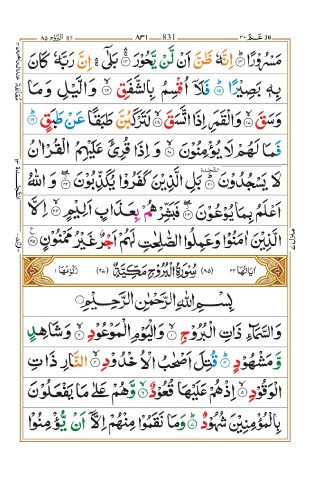 مَسْرُوْرًا ۝ اِنَّهٗ ظَنَّ اَنْ لَّنْ يَّحُوْرَ ۝ بَلٰٓى ۚ اِنَّ رَبَّهٗ كَانَ
بِهٖ بَصِيْرًا ۝ فَلَاۤ اُقْسِمُ بِالشَّفَقِ ۝ وَالَّيْلِ وَمَا
وَسَقَ ۝ وَالْقَمَرِ اِذَا اتَّسَقَ ۝ لَتَرْكَبُنَّ طَبَقًا عَنْ طَبَقٍ ۝
فَمَا لَهُمْ لَا يُؤْمِنُوْنَ ۝ وَ اِذَا قُرِئَ عَلَيْهِمُ الْقُرْاٰنُ
لَا يَسْجُدُوْنَ ۝ بَلِ الَّذِيْنَ كَفَرُوْا يُكَذِّبُوْنَ ۝ وَ اللّٰهُ
اَعْلَمُ بِمَا يُوْعُوْنَ ۝ فَبَشِّرْهُمْ بِعَذَابٍ اَلِيْمٍ ۝ اِلَّا
الَّذِيْنَ اٰمَنُوْا وَعَمِلُوا الصّٰلِحٰتِ لَهُمْ اَجْرٌ غَيْرُ مَمْنُوْنٍ ۝
اٰيَاتُهَا ٢٢ (٨٥) سُوْرَةُ الْبُرُوْجِ مَكِّيَّةٌ (٢٧) رُكُوْعُهَا ١
بِسْمِ اللّٰهِ الرَّحْمٰنِ الرَّحِيْمِ
وَالسَّمَآءِ ذَاتِ الْبُرُوْجِ ۝ وَالْيَوْمِ الْمَوْعُوْدِ ۝ وَشَاهِدٍ
وَّمَشْهُوْدٍ ۝ قُتِلَ اَصْحٰبُ الْاُخْدُوْدِ ۝ النَّارِ ذَاتِ
الْوَقُوْدِ ۝ اِذْ هُمْ عَلَيْهَا قُعُوْدٌ ۝ وَّهُمْ عَلٰى مَا يَفْعَلُوْنَ
بِالْمُؤْمِنِيْنَ شُهُوْدٌ ۝ وَمَا نَقَمُوْا مِنْهُمْ اِلَّاۤ اَنْ يُّؤْمِنُوْا